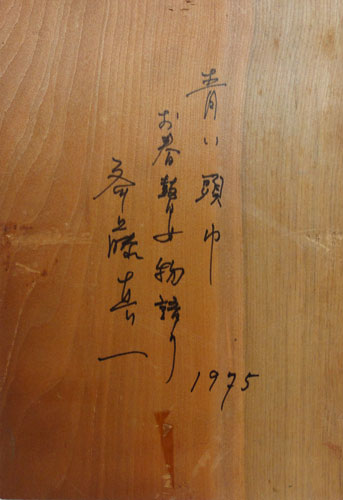 青い頭巾
お春瞽女物語り
斎藤真一
1975